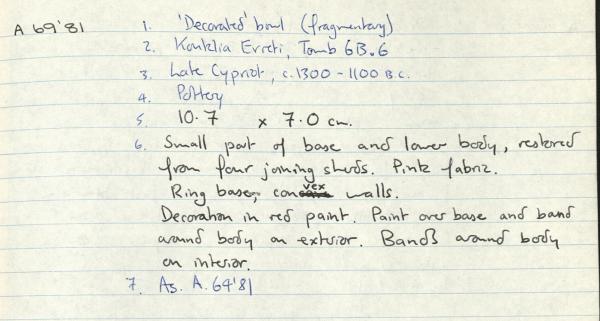 A 69'81
1. 'Decorated' bowl (fragmentary)
2. Kouklia Evreti, Tomb GB.6
3. Late Cypriot, c.1300-1100 B.C.
4. Pottery
5. 10.7 x 7.0 cm.
6. Small part of base and lower body, restored
from four joining sherds. Pink fabric.
Ring base, convex walls.
Decoration in red paint. Paint over base and band
around body on exterior. Bands around body
on interior.
7. As. A.64'81